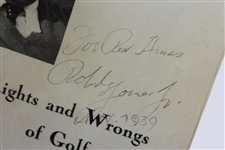 For Ben Hines
Robt Jones Jr.
1939
ights and Wrongs
of Golf